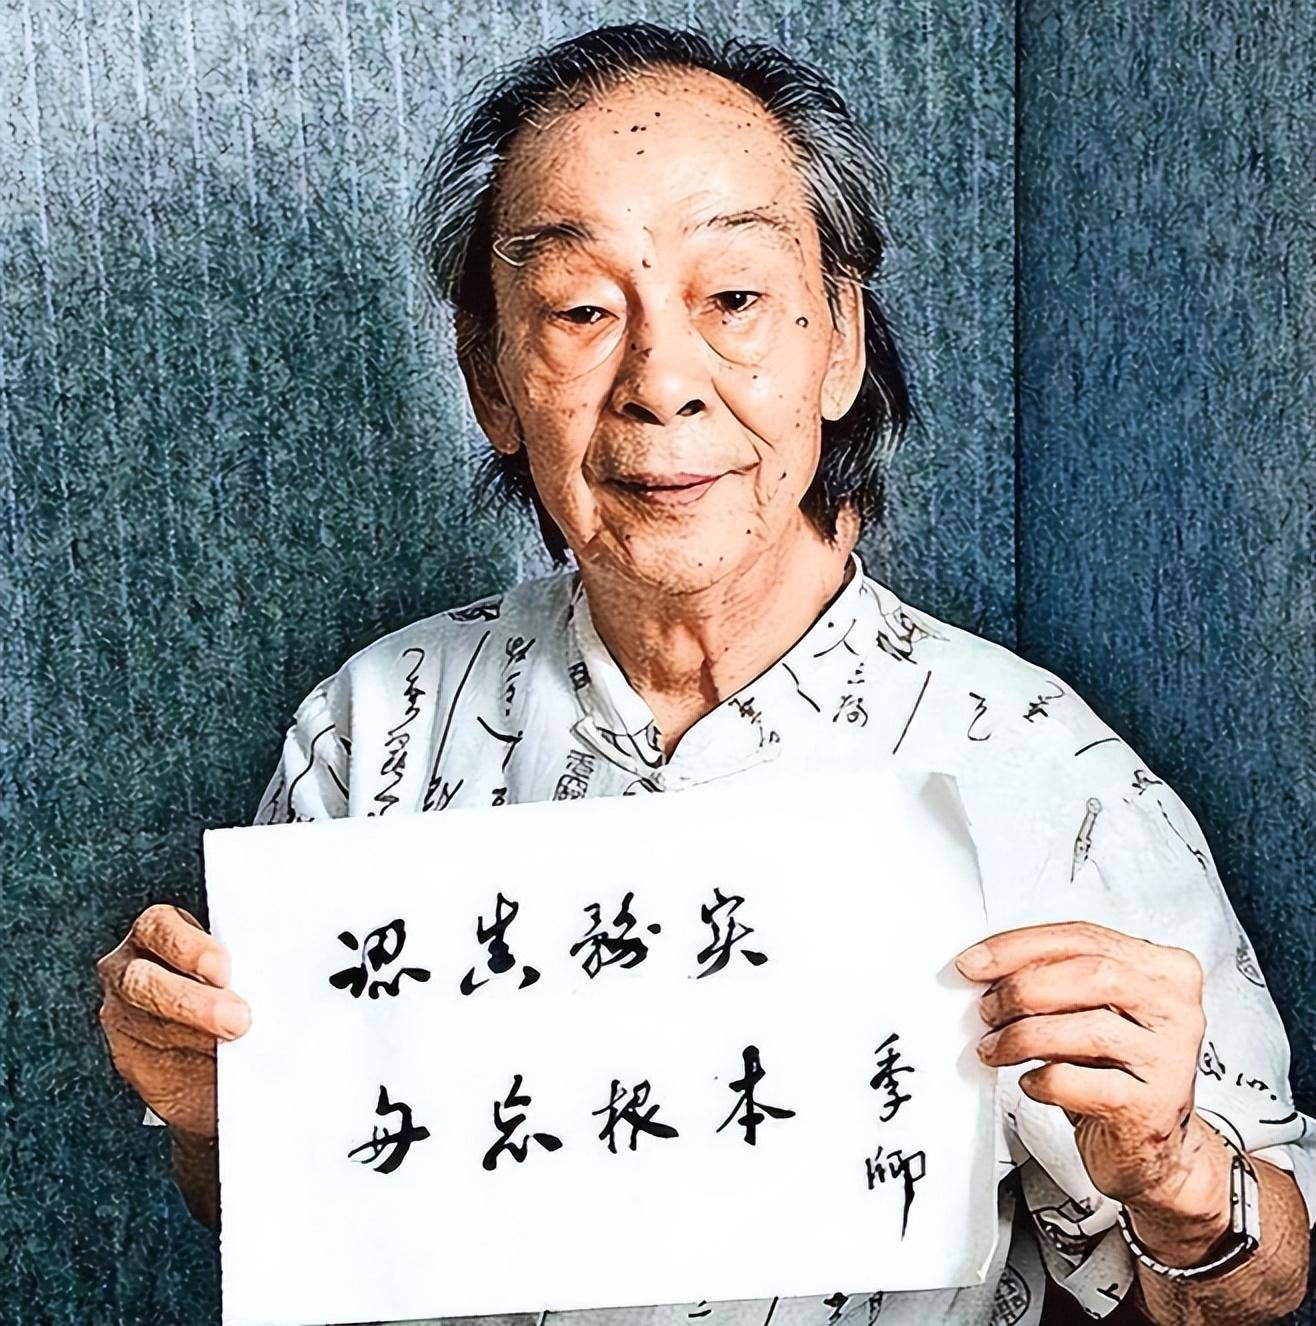 認真務实
毋忘根本
季卿